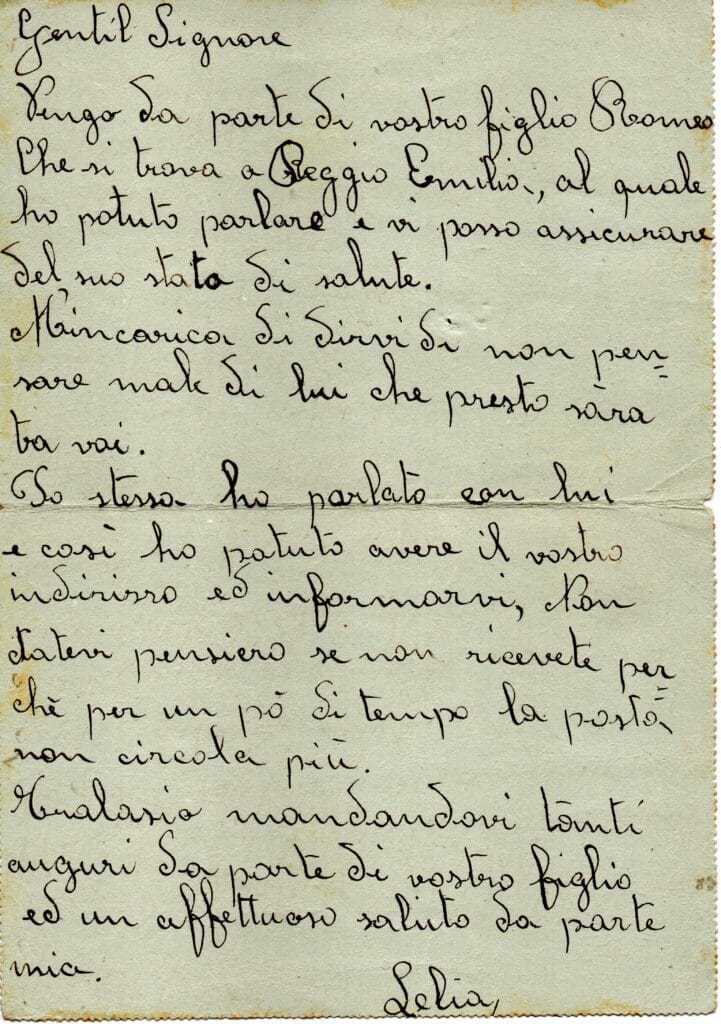 Gentil Signore
Vengo da parte di vostro figlio Romeo
Che si trova a Reggio Emilia, al quale
ho potuto parlare e vi posso assicurare
del suo stato di salute.
M'incarica di dirvi di non pen=
sare male di lui che presto sàra
tra voi.
Io stessa ho parlato con lui
e così ho potuto avere il vostro
indirisso ed informarvi, Non
datevi pensiero se non ricevete per=
chè per un pò di tempo la posta
non circola più.
Tralasio mandandovi tanti
auguri da parte di vostro figlio
ed un affettuoso saluto da parte
mia.
Lelia,